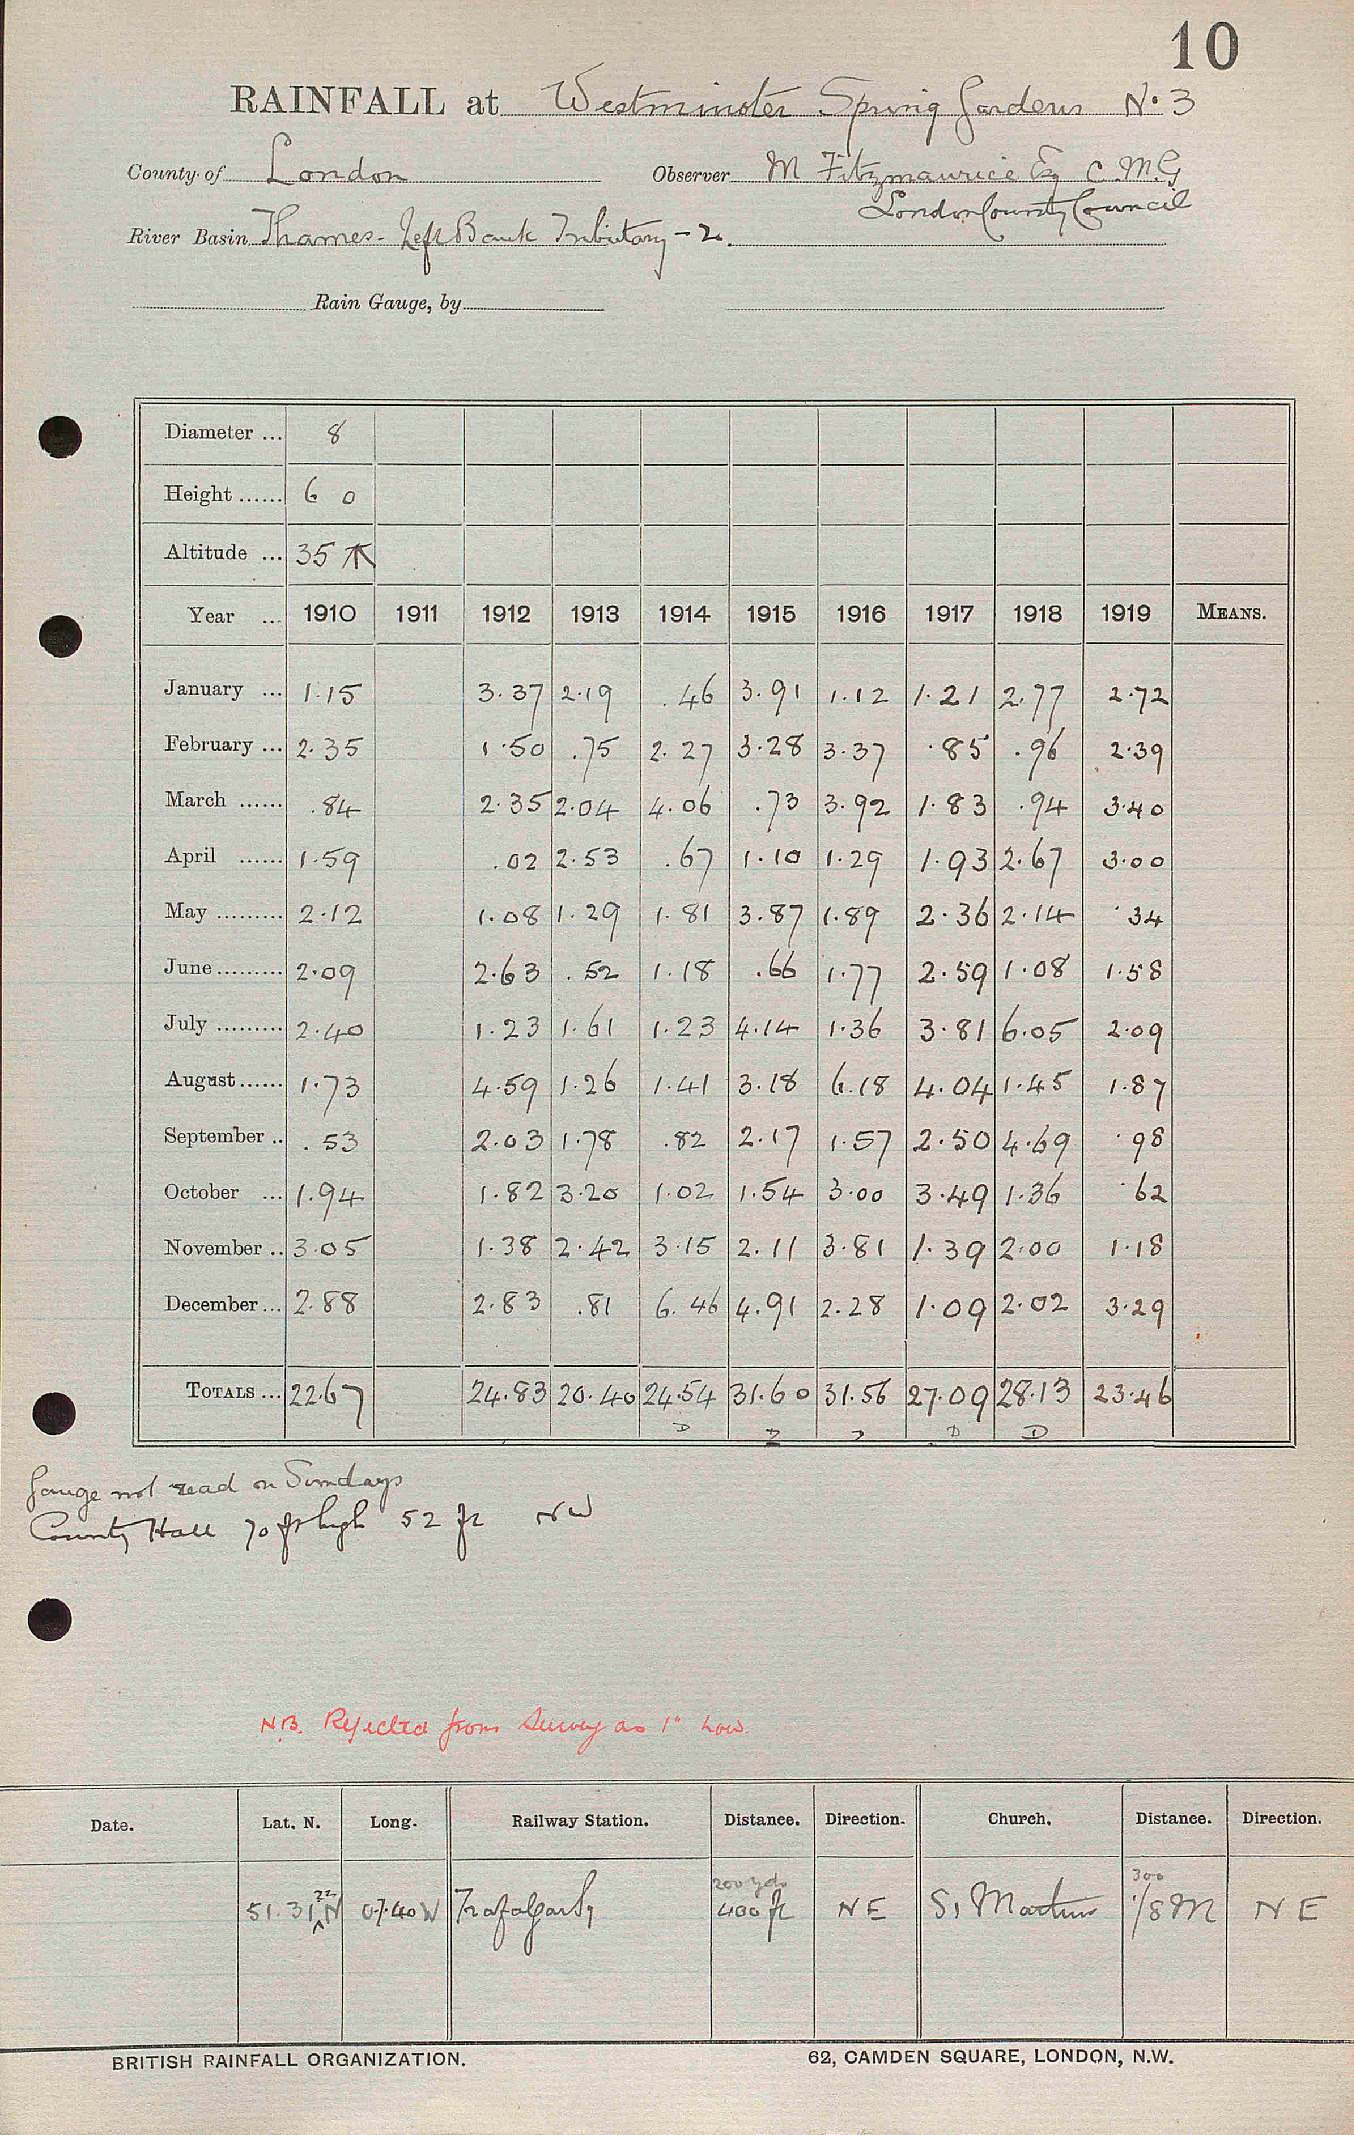 10
RAINFALL at Westminster Spring Gardens No. 3
County of London Observer M Fitzmaurice Esq C.M.G
London County Council
River Basin Thames - Left Bank Tributary - 2.
Rain Gauge, by
Diameter ... 8
Height ...... 6 0
Altitude ... 35
Year ... 1910 1911 1912 1913 1914 1915 1916 1917 1918 1919 MEANS.
January ... 1.15 3.37 2.19 .46 3.91 1.12 1.21 2.77 2.72
February ... 2.35 1.50 .75 2.27 3.28 3.37 .85 .96 2.39
March ...... .84 2.35 2.04 4.06 .73 3.92 1.83 .94 3.40
April ...... 1.59 .02 2.53 .67 1.10 1.29 1.93 2.67 3.00
May ......... 2.12 1.08 1.29 1.81 3.87 1.89 2.36 2.14 .34
June ......... 2.09 2.63 .52 1.18 .66 1.77 2.59 1.08 1.58
July ......... 2.40 1.23 1.61 1.23 4.14 1.36 3.81 6.05 2.09
August ...... 1.73 4.59 1.26 1.41 3.18 6.18 4.04 1.45 1.87
September .. .53 2.03 1.78 .82 2.17 1.57 2.50 4.69 .98
October ... 1.94 1.82 3.20 1.02 1.54 3.00 3.49 1.36 .62
November .. 3.05 1.38 2.42 3.15 2.11 3.81 1.39 2.00 1.18
December ... 2.88 2.83 .81 6.46 4.91 2.28 1.09 2.02 3.29
TOTALS ... 22.67 24.83 20.40 24.54 31.60 31.56 27.09 28.13 23.46
Gauge not read on Sundays
County Hall 70 ft high 52 ft NW
N.B. Rejected from Survey as 1" low.
Date. Lat. N. Long. Railway Station. Distance. Direction. Church. Distance. Direction.
22 200 yds 300
51.31 N 0.7.40 W Trafalgar Sq 400 ft NE St Martins 1/8 M NE
BRITISH RAINFALL ORGANIZATION. 62, CAMDEN SQUARE, LONDON, N.W.